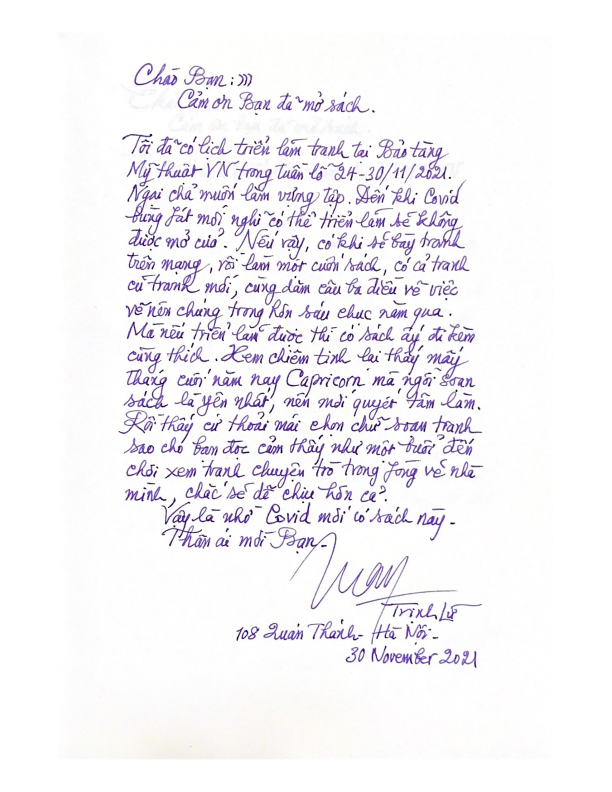 Chào Bạn :)))
Cảm ơn Bạn đã mở sách.
Tôi đã có lịch triển lãm tranh tại Bảo tàng
Mỹ thuật VN trong tuần lễ 24-30/11/2021.
Ngại chả muốn làm vựng tập. Đến khi Covid
bùng phát mới nghĩ có thể triển lãm sẽ không
được mở cửa. Nếu vậy, có khi sẽ bày tranh
trên mạng, rồi làm một cuốn sách, có cả tranh
cũ tranh mới, cùng dăm câu ba điều về việc
vẽ nên chúng trong hơn sáu chục năm qua.
Mà nếu triển lãm được thì có sách ấy đi kèm
cũng thích. Xem chiêm tinh lại thấy mấy
tháng cuối năm nay Capricorn mà ngồi soạn
sách là yên nhất, nên mới quyết tâm làm.
Rồi thấy cứ thoải mái chọn chữ soạn tranh
sao cho bạn đọc cảm thấy như một buổi đến
chơi xem tranh chuyện trò trong xưởng vẽ nhà
mình, chắc sẽ dễ chịu hơn cả.
Vậy là nhờ Covid mới có sách này -
Thân ái mời Bạn -
Trịnh Lữ
108 Quán Thánh - Hà Nội -
30 November 2021